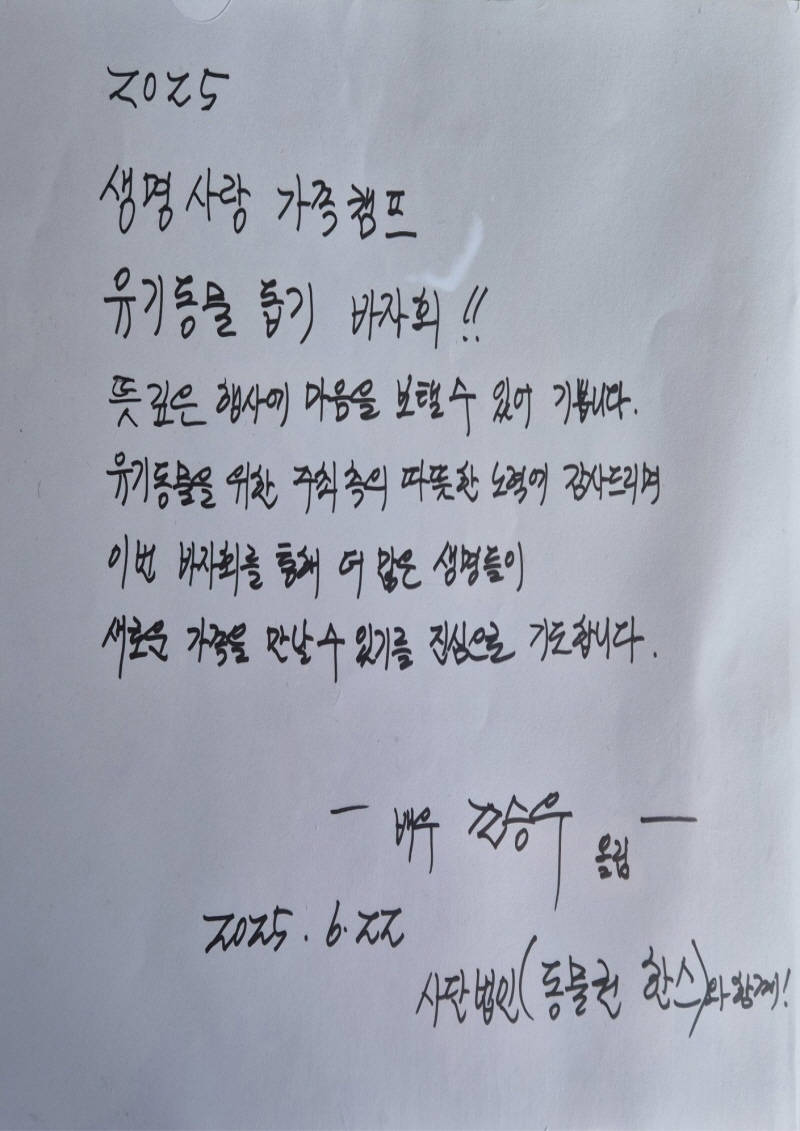 2025
생명사랑 가족캠프
유기동물 돕기 바자회 !!
뜻깊은 행사에 마음을 보탤 수 있어 기쁩니다.
유기동물을 위한 주최측의 따뜻한 노력에 감사드리며
이번 바자회를 통해 더 많은 생명들이
새로운 가족을 만날 수 있기를 진심으로 기도합니다.
— 배우 김승우 올림 —
2025. 6. 22
사단법인(동물권 한스)와 함께!